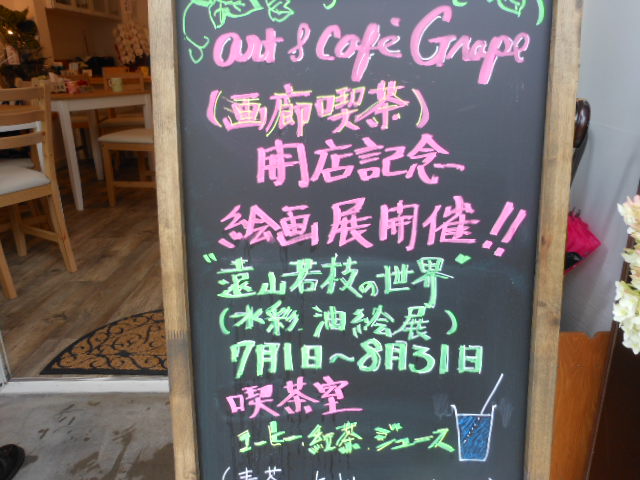 art & café Grape
(画廊喫茶)
開店記念
絵画展開催!!
"遠山若枝の世界"
(水彩.油絵展)
7月1日～8月31日
喫茶室
コーヒー.紅茶.ジュース